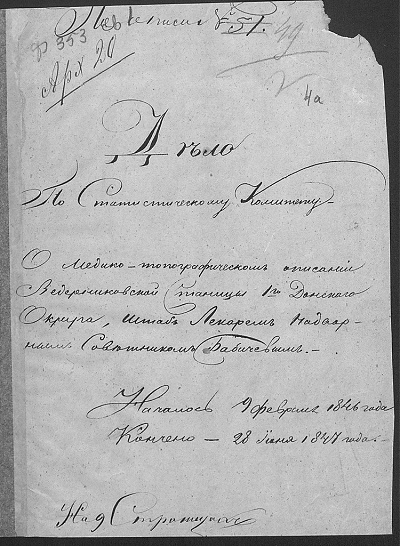 ф 353 св 1
Арх 20
По описи № 51.
49
4а
Дѣло
По Статистическому Комитету
О медико-топографическомъ описаніи
Ведерниковской Станицы 1го Донского
Округа, Штабъ Лекаремъ Надвор-
нымъ Совѣтникомъ Бабичевымъ.
Началось 9 февраля 1846 года
Кончено — 28 Іюня 1847 года.
На 9 Страницахъ